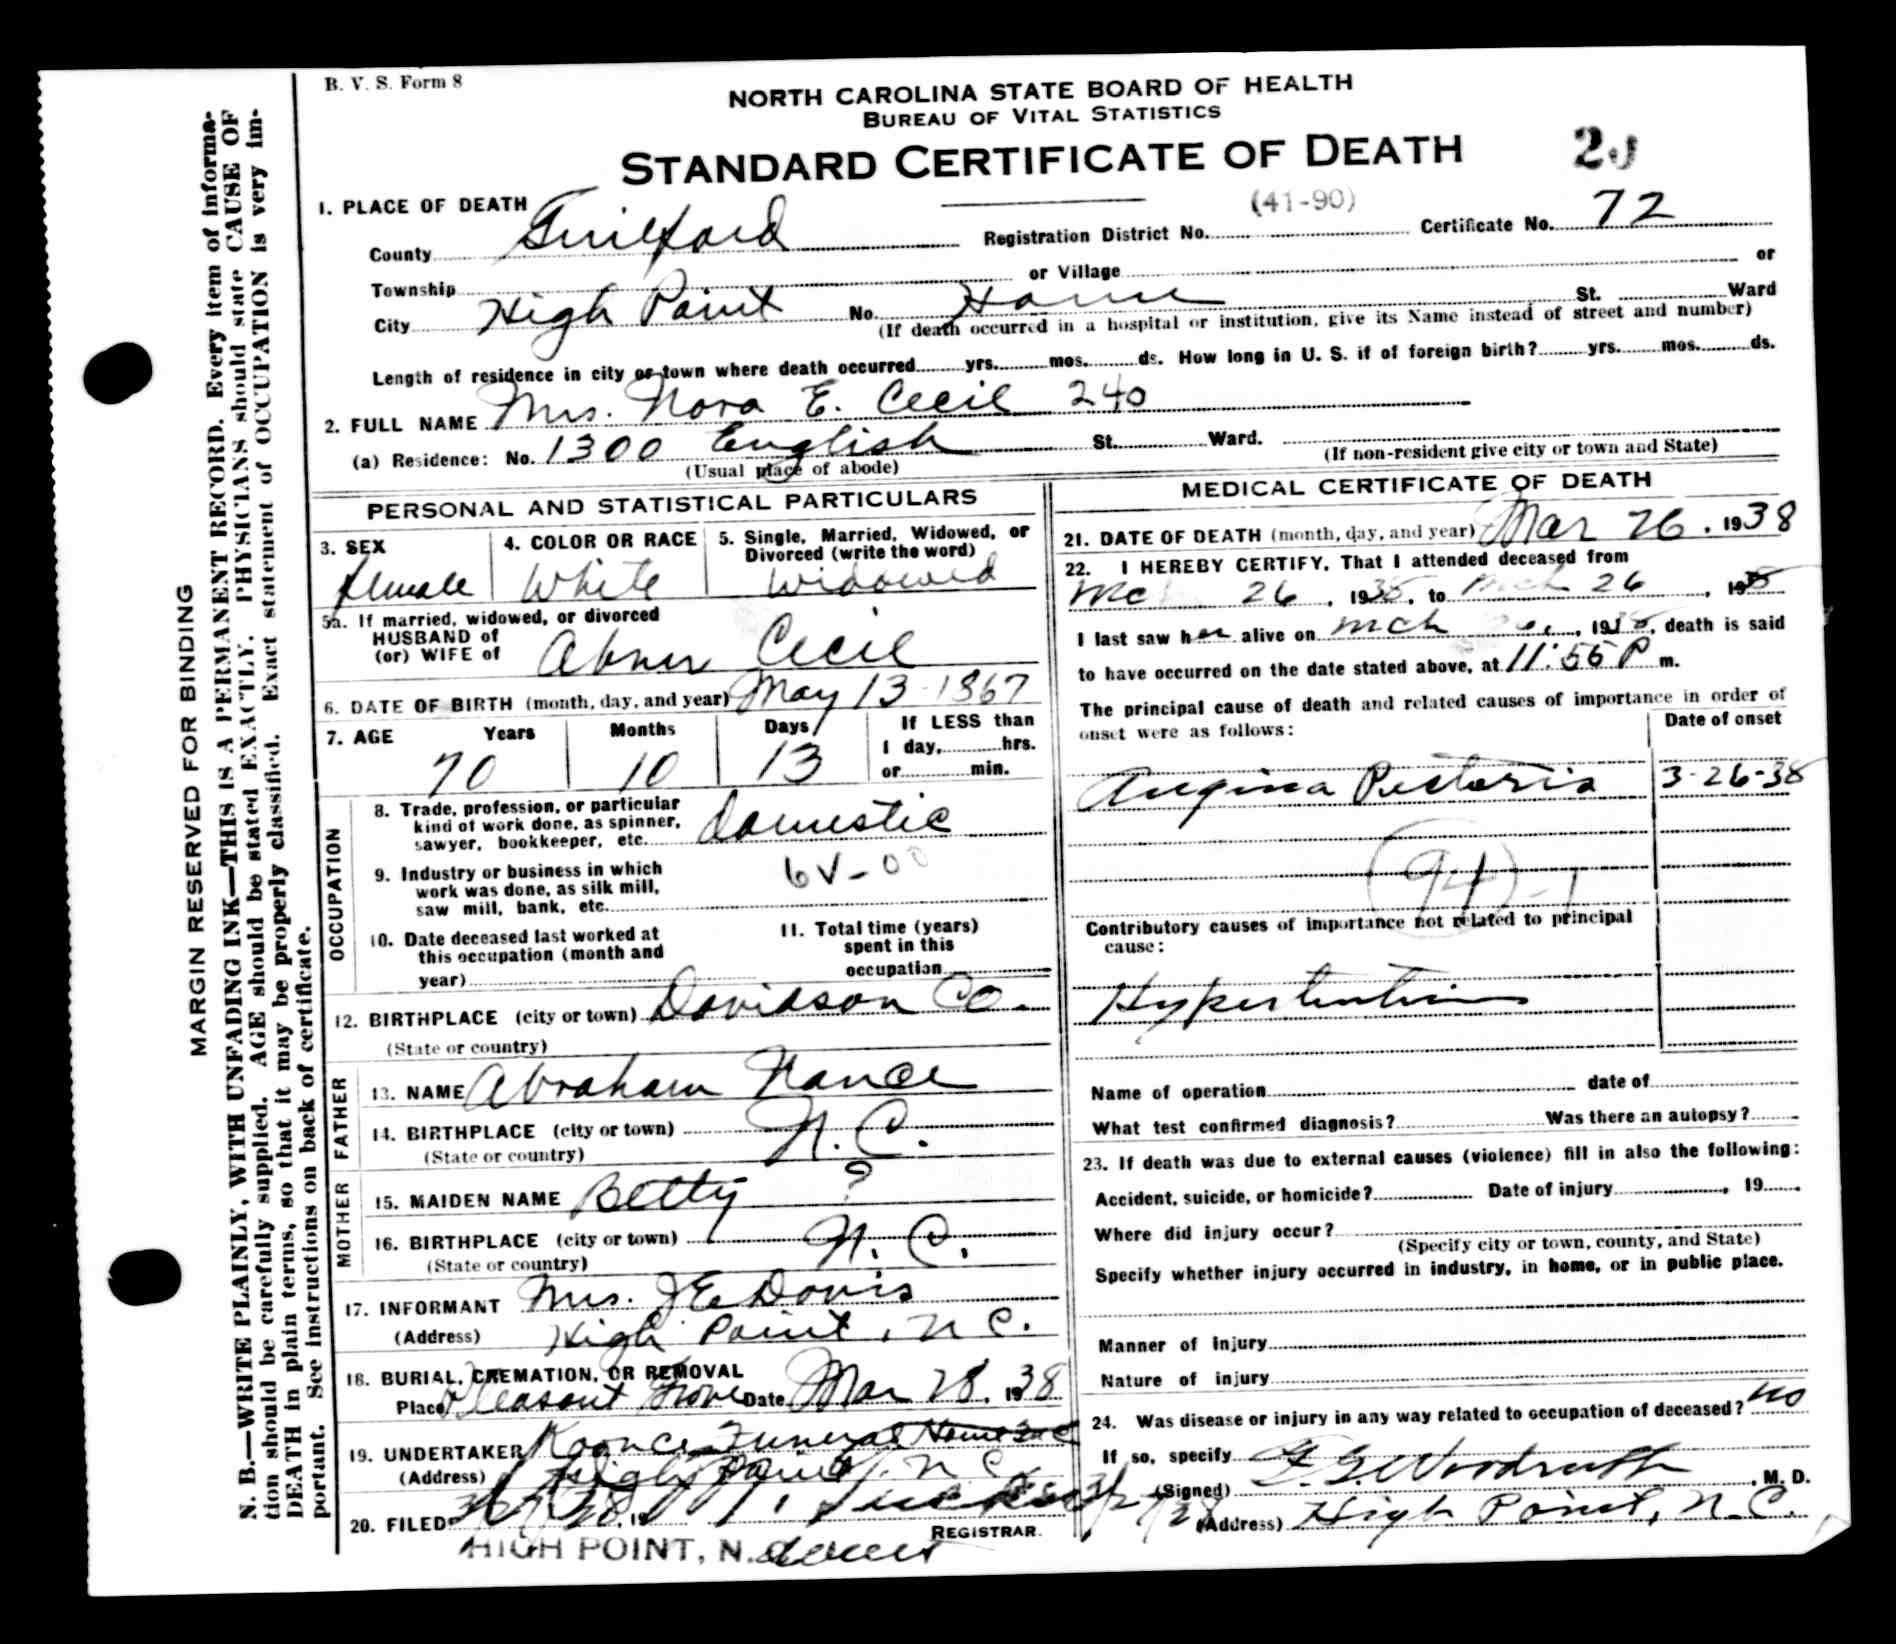 B. V. S. Form 8
NORTH CAROLINA STATE BOARD OF HEALTH
BUREAU OF VITAL STATISTICS
STANDARD CERTIFICATE OF DEATH
1. PLACE OF DEATH (41-90)
County Guilford Registration District No. Certificate No. 72
Township or Village or
City High Point No. Home St. Ward
(If death occurred in a hospital or institution, give its Name instead of street and number)
Length of residence in city or town where death occurred yrs. mos. ds. How long in U. S. if of foreign birth? yrs. mos. ds.
2. FULL NAME Mrs. Nora E. Cecil 240
(a) Residence: No. 1300 English St. Ward.
(Usual place of abode) (If non-resident give city or town and State)
PERSONAL AND STATISTICAL PARTICULARS
3. SEX 4. COLOR OR RACE 5. Single, Married, Widowed, or
Divorced (write the word)
female White Widowed
5a. If married, widowed, or divorced
HUSBAND of
(or) WIFE of Abner Cecil
6. DATE OF BIRTH (month, day, and year) May 13-1867
7. AGE Years Months Days If LESS than
1 day, hrs.
or min.
70 10 13
OCCUPATION
8. Trade, profession, or particular
kind of work done, as spinner,
sawyer, bookkeeper, etc. Domestic
9. Industry or business in which
work was done, as silk mill,
saw mill, bank, etc.
6V-00
10. Date deceased last worked at
this occupation (month and
year)
11. Total time (years)
spent in this
occupation
12. BIRTHPLACE (city or town) Davidson Co.
(State or country)
FATHER
13. NAME Abraham Nance
14. BIRTHPLACE (city or town) N. C.
(State or country)
MOTHER
15. MAIDEN NAME Betty ?
16. BIRTHPLACE (city or town) N. C.
(State or country)
17. INFORMANT Mrs. J E Davis
(Address) High Point, N C.
18. BURIAL, CREMATION, OR REMOVAL
Place Pleasant Grove Date Mar 28. 1938
19. UNDERTAKER Koonce Funeral Home Inc
(Address) High Point, N C
20. FILED
REGISTRAR.
HIGH POINT, N.
MEDICAL CERTIFICATE OF DEATH
21. DATE OF DEATH (month, day, and year) Mar 26. 1938
22. I HEREBY CERTIFY, That I attended deceased from
Mch 26, 1938, to Mch 26, 1938
I last saw her alive on mch 26, 1938, death is said
to have occurred on the date stated above, at 11:55 P m.
The principal cause of death and related causes of importance in order of
onset were as follows:
Date of onset
Angina Pectoris 3-26-38
94-1
Contributory causes of importance not related to principal
cause:
Hypertension
Name of operation date of
What test confirmed diagnosis? Was there an autopsy?
23. If death was due to external causes (violence) fill in also the following:
Accident, suicide, or homicide? Date of injury , 19
Where did injury occur?
(Specify city or town, county, and State)
Specify whether injury occurred in industry, in home, or in public place.
Manner of injury
Nature of injury
24. Was disease or injury in any way related to occupation of deceased? no
If so, specify
(Signed) Woodruff, M. D.
(Address) High Point, N. C.
MARGIN RESERVED FOR BINDING
N. B.—WRITE PLAINLY, WITH UNFADING INK—THIS IS A PERMANENT RECORD. Every item of informa-
tion should be carefully supplied. AGE should be stated EXACTLY. PHYSICIANS should state CAUSE OF
DEATH in plain terms, so that it may be properly classified. Exact statement of OCCUPATION is very im-
portant. See instructions on back of certificate.